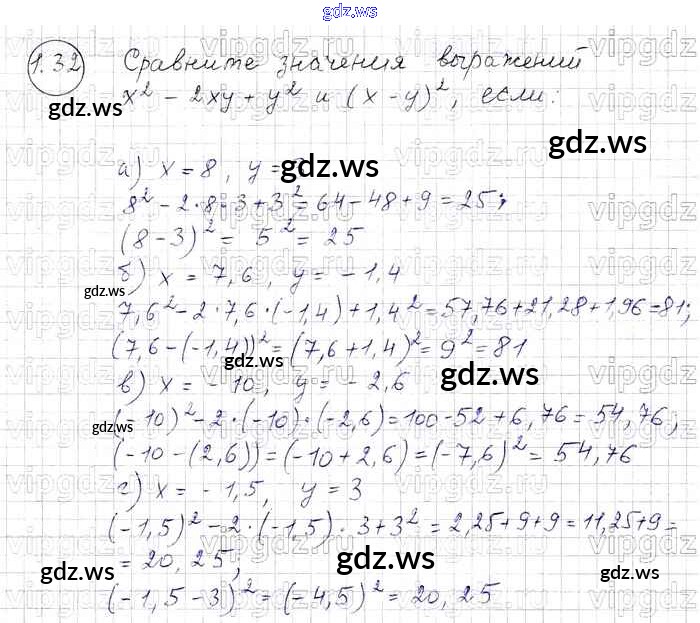 gdz.ws
1.32 Сравните значения выражений
x² - 2xy + y² и (x - y)², если:
gdz.ws
gdz.ws
а) x = 8, y =
gdz.ws
8² - 2·8·3 + 3² = 64 - 48 + 9 = 25;
(8 - 3)² = 5² = 25
б) x = 7,6, y = - 1,4
gdz.ws
7,6² - 2·7,6·(-1,4) + 1,4² = 57,76 + 21,28 + 1,96 = 81;
(7,6 - (-1,4))² = (7,6 + 1,4)² = 9² = 81
gdz.ws
gdz.ws
в) x = - 10, y = - 2,6
(-10)² - 2·(-10)·(-2,6) = 100 - 52 + 6,76 = 54,76;
gdz.ws
(-10 - (2,6)) = (-10 + 2,6) = (-7,6)² = 54,76
г) x = - 1,5, y = 3
(-1,5)² - 2·(-1,5)·3 + 3² = 2,25 + 9 + 9 = 11,25 + 9 =
= 20,25;
gdz.ws
gdz.ws
gdz.ws
(-1,5 - 3)² = (-4,5)² = 20,25